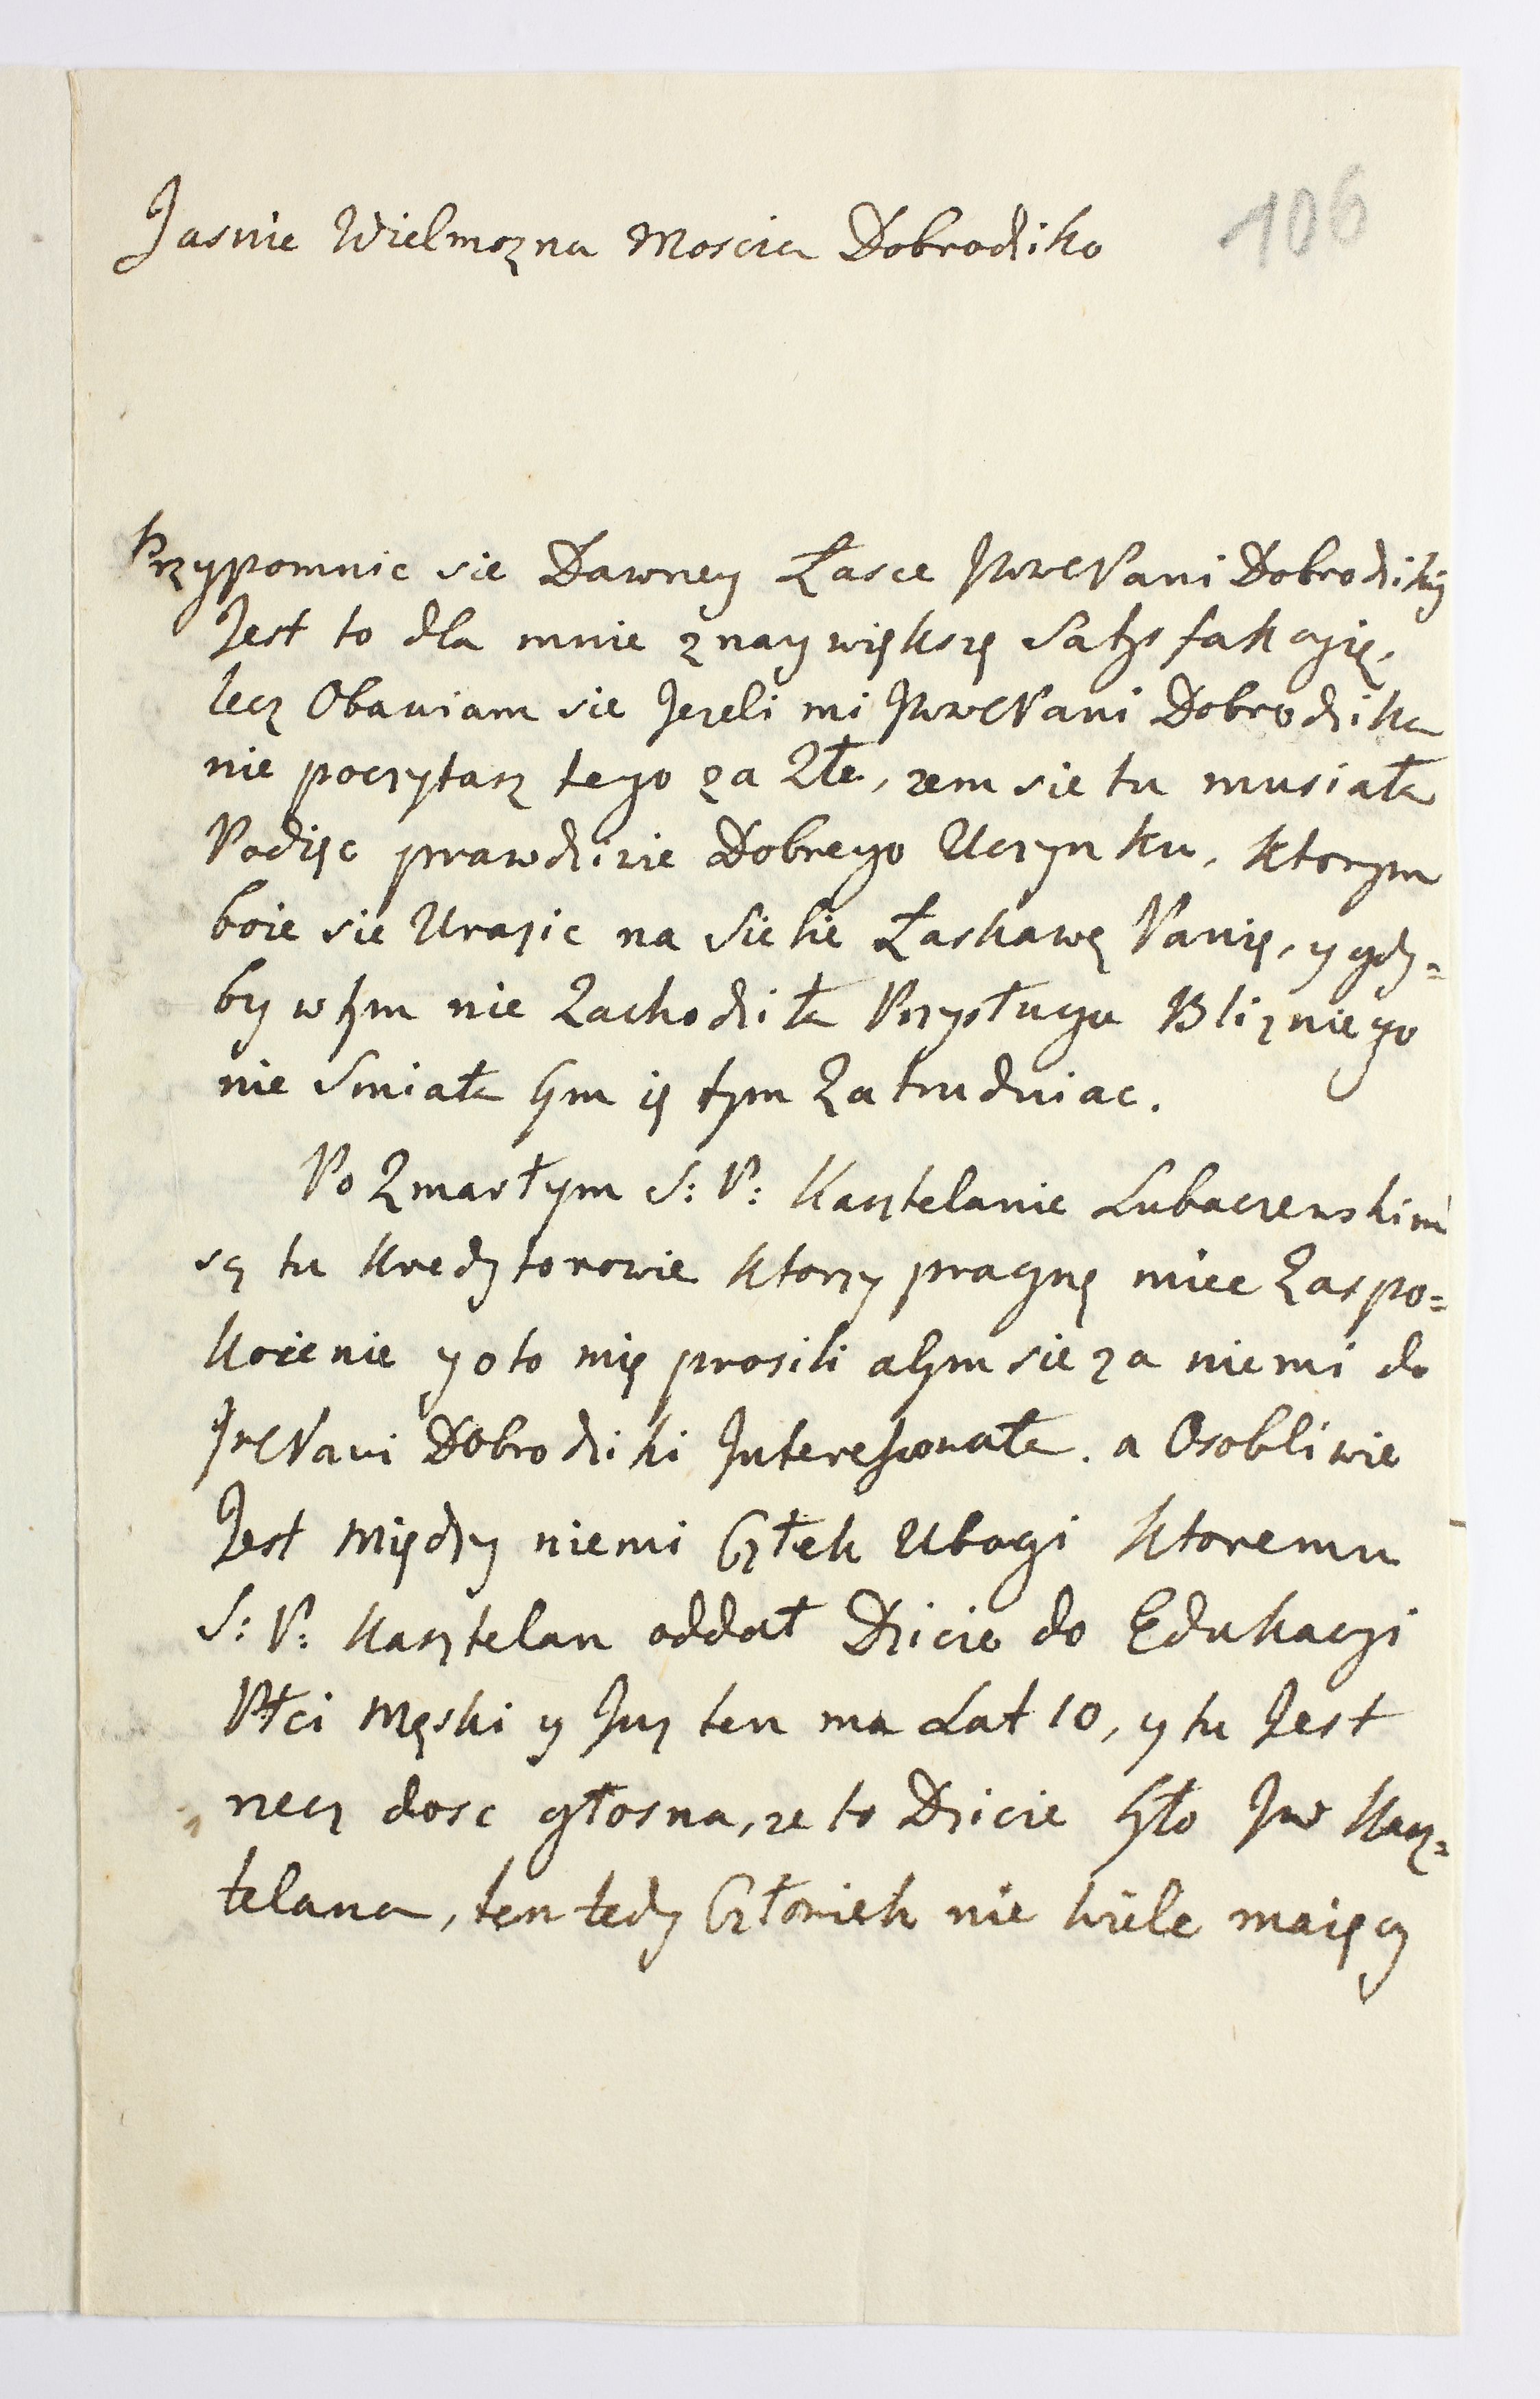 106
Jasnie Wielmozna Moscia Dobrodziko
Przypomnic sie Dawney Łasce JWWPani Dobrodziki
Jest to dla mnie z naywiększę Satysfakcyię,
lecz Obawiam sie Jezeli mi JWWPani Dobrodzika
nie poczytasz tego za Złe, zem sie tu musiała
Podięc prawdziwie Dobrego Uczynku, ktorym
boie sie Urazic na Siebie Łaskawę Panię, y gdy=
by w tym nie Zachodziła Przysługa Blizniego
nie Smiała bym ię tym Zatrudniac.
Po Zmarłym S: P: Kasztelanie Lubaczewskim
sę tu Kredytorowie ktorzy pragnę miec Zaspo=
koienie y oto mię prosili abym sie za niemi do
JWPani Dobrodziki Interessowała. a Osobliwie
Jest Między niemi Człek Ubogi ktoremu
S: P: Kasztelan oddał Dzicie do Edukacyi
Płci Męski y Juz ten ma Lat 10, y tu Jest
rzecz dosc głosna, ze to Dzicie było JW Kasz=
telana, ten tedy Człowiek nie wiele maięcy